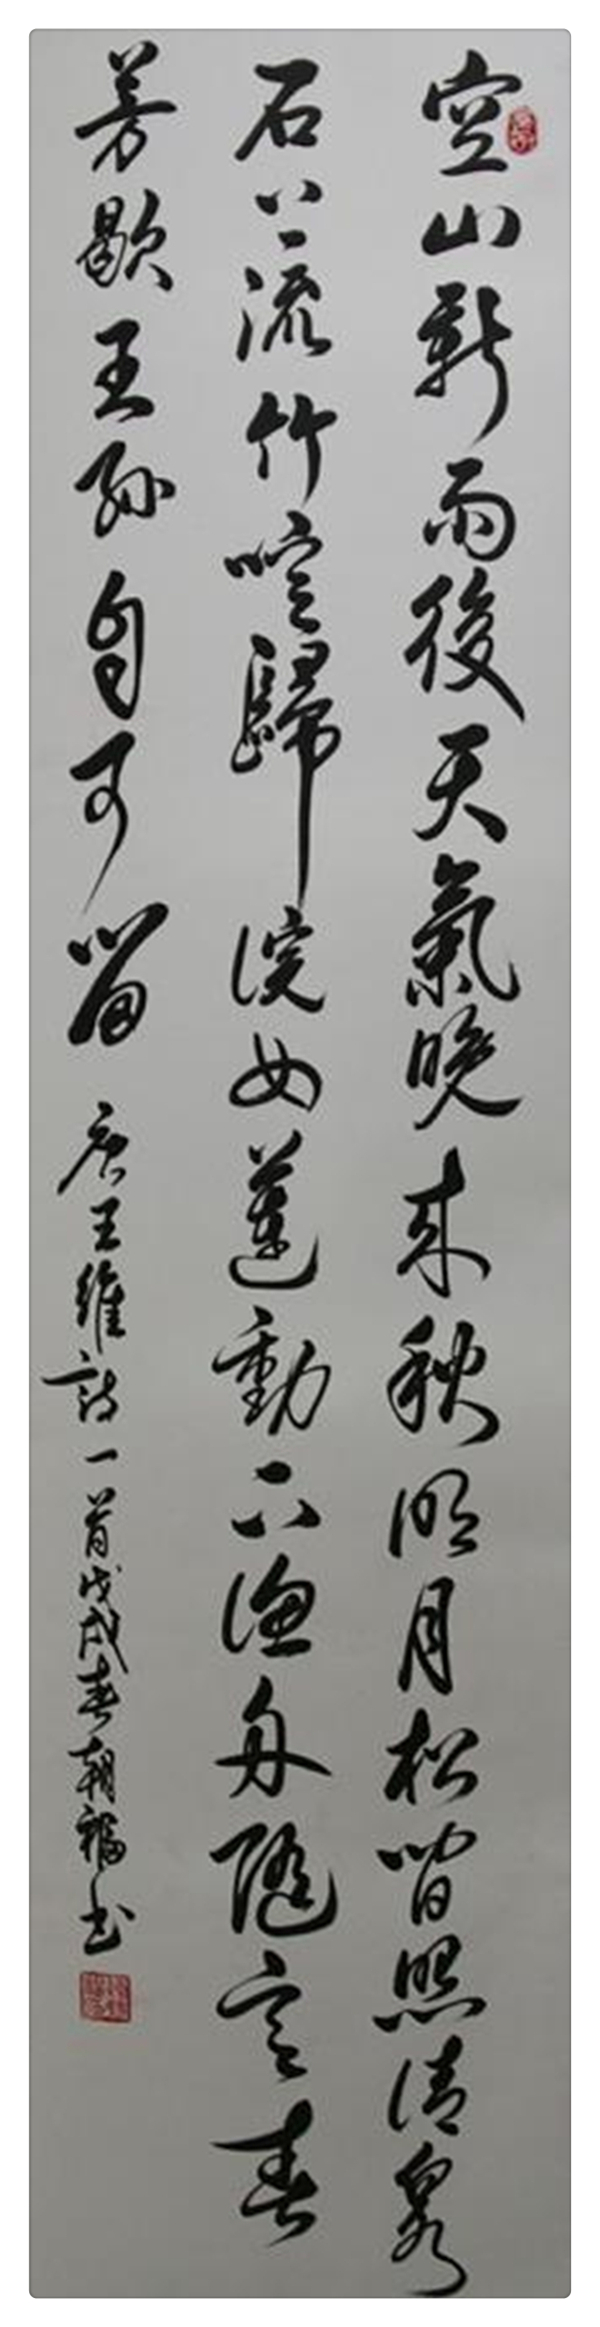 空山新雨後天氣晚来秋明月松間照清泉
石上流竹喧歸浣女蓮動下漁舟隨意春
芳歇王孫自可留 唐王維詩一首戊戌春朝福书